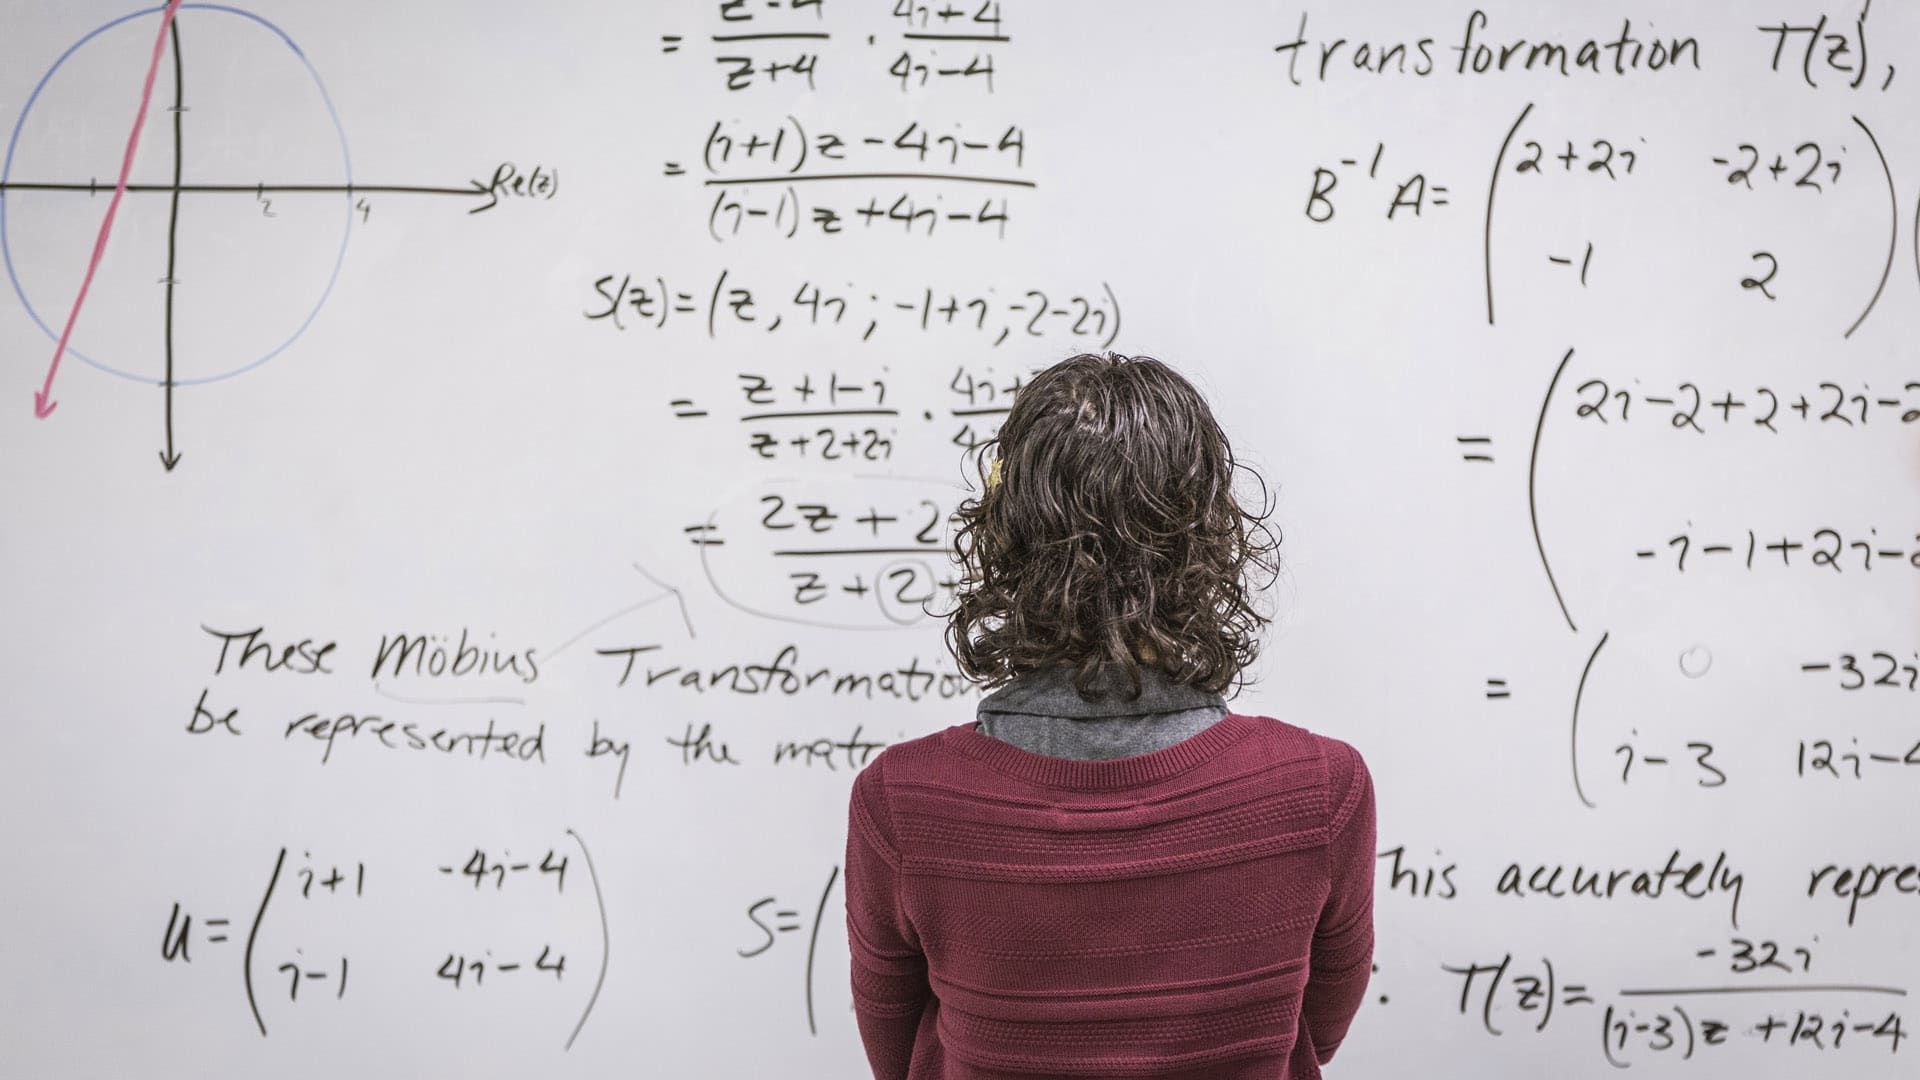 Re(z)
2 4
= z-4/z+4 · 4i+4/4i-4
= (i+1)z-4i-4/(i-1)z+4i-4
S(z)=(z, 4i; -1+i, -2-2i)
= z+1-i/z+2+2i ·
= 2z+2/z+2+
These Möbius Transformation
be represented by the
u= (i+1 -4i-4
i-1 4i-4)
S=(
transformation T(z),
B^-1 A= (2+2i -2+2i
-1 2)
= (2i-2+2+2i-2
-i-1+2i-2
= (0 -32i
i-3 12i-4
accurately
: T(z)= -32i/(i-3)z+12i-4